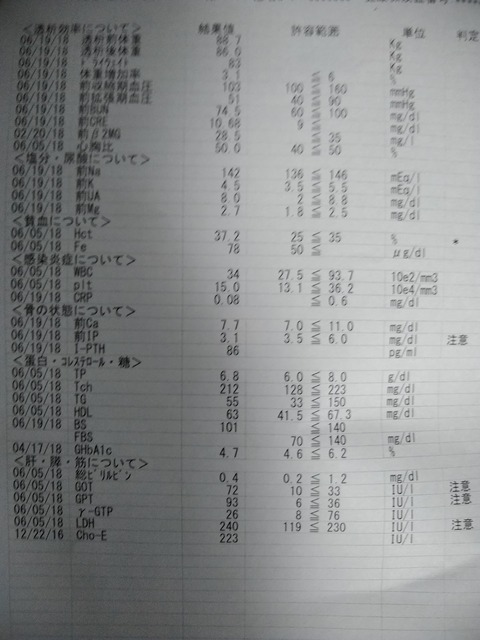 <透析効率について> 結果値 許容範囲 単位 判定
06/19/18 透析前体重 88.7 Kg
06/19/18 透析後体重 86.0 Kg
06/19/18 ドライウェイト 83 Kg
06/19/18 体重増加率 3.1 ≦ 6 %
06/19/18 前収縮期血圧 103 100 ≦ 160 mmHg
06/19/18 前拡張期血圧 51 40 ≦ 90 mmHg
06/19/18 前BUN 74.5 60 ≦ 100 mg/dl
06/19/18 前CRE 10.68 9 ≦ mg/dl
02/20/18 前β2MG 28.5 ≦ 35 mg/l
06/05/18 心胸比 50.0 40 ≦ 50 %
<塩分・尿酸について>
06/19/18 前Na 142 136 ≦ 146 mEq/l
06/19/18 前K 4.5 3.5 ≦ 5.5 mEq/l
06/19/18 前UA 8.0 2 ≦ 8.8 mg/dl
06/19/18 前Mg 2.7 1.8 ≦ 2.5 mg/dl
<貧血について>
06/05/18 Hct 37.2 25 ≦ 35 % *
06/05/18 Fe 78 50 ≦ μg/dl
<感染炎症について>
06/05/18 WBC 34 27.5 ≦ 93.7 10e2/mm3
06/05/18 plt 15.0 13.1 ≦ 36.2 10e4/mm3
06/19/18 CRP 0.08 ≦ 0.6 mg/dl
<骨の状態について>
06/19/18 前Ca 7.7 7.0 ≦ 11.0 mg/dl
06/19/18 前IP 3.1 3.5 ≦ 6.0 mg/dl 注意
06/19/18 I-PTH 86 pg/ml
<蛋白・コレステロール・糖>
06/05/18 TP 6.8 6.0 ≦ 8.0 g/dl
06/05/18 Tch 212 128 ≦ 223 mg/dl
06/05/18 TG 55 33 ≦ 150 mg/dl
06/05/18 HDL 63 41.5 ≦ 67.3 mg/dl
06/19/18 BS 101 ≦ 140
FBS 70 ≦ 140 mg/dl
04/17/18 GHbA1c 4.7 4.6 ≦ 6.2 %
<肝・膵・筋について>
06/05/18 総ビリルビン 0.4 0.2 ≦ 1.2 mg/dl
06/05/18 GOT 72 10 ≦ 33 IU/l 注意
06/05/18 GPT 93 6 ≦ 36 IU/l 注意
06/05/18 γ-GTP 26 8 ≦ 76 IU/l
06/05/18 LDH 240 119 ≦ 230 IU/l 注意
12/22/16 Cho-E 223 IU/l